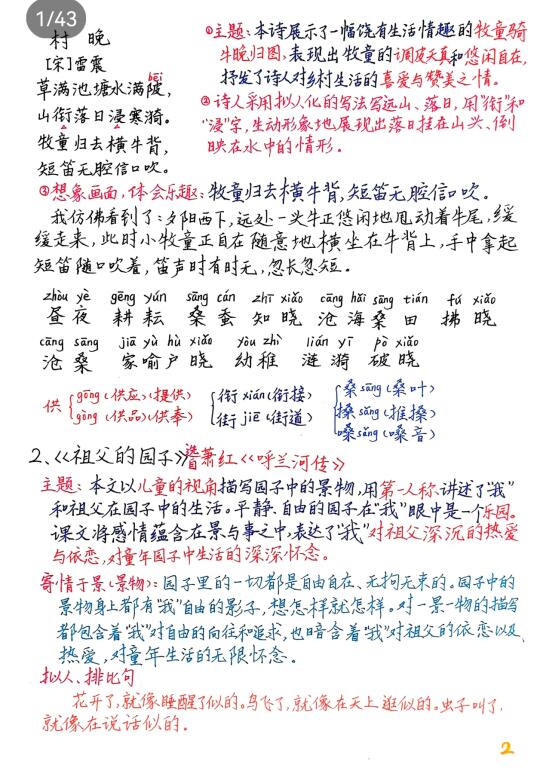 1/43
村晚
[宋]雷震
草满池塘水满陂，
bēi
山衔落日浸寒漪。
牧童归去横牛背，
短笛无腔信口吹。
①主题：本诗展示了一幅饶有生活情趣的牧童骑
牛晚归图，表现出牧童的调皮天真和悠闲自在，
抒发了诗人对乡村生活的喜爱与赞美之情。
②诗人采用拟人化的写法写远山、落日，用“衔”和
“浸”字，生动形象地展现出落日挂在山头、倒
映在水中的情形。
③想象画面，体会乐趣：牧童归去横牛背，短笛无腔信口吹。
我仿佛看到了：夕阳西下，远处一头牛正悠闲地甩动着牛尾，缓
缓走来，此时小牧童正自在随意地横坐在牛背上，手中拿起
短笛随口吹着，笛声时有时无，忽长忽短。
zhòu yè gēng yún sāng cán zhī xiǎo cāng hǎi sāng tián fú xiǎo
昼夜 耕耘 桑蚕 知晓 沧海桑田 拂晓
cāng sāng jiā yù hù xiǎo yòu zhì lián yī pò xiǎo
沧桑 家喻户晓 幼稚 涟漪 破晓
供 gōng(供应)(提供) 衔 xián(衔接) 桑 sāng(桑叶)
gòng(供品)(供奉) 街 jiē(街道) 搡 sǎng(推搡)
嗓 sǎng(嗓音)
2、《祖父的园子》选自萧红《呼兰河传》
主题：本文以儿童的视角描写园子中的景物，用第一人称讲述了“我”
和祖父在园子中的生活。平静、自由的园子在“我”眼中是一个乐园。
课文将感情蕴含在景与事之中，表达了“我”对祖父深沉的热爱
与依恋，对童年园子中生活的深深怀念。
寄情于景(景物)：园子里的一切都是自由自在、无拘无束的。园子中的
景物身上都有“我”自由的影子，想怎样就怎样。对一景一物的描写
都包含着“我”对自由的向往和追求，也暗含着“我”对祖父的依恋以及
热爱，对童年生活的无限怀念。
拟人、排比句
花开了，就像睡醒了似的。鸟飞了，就像在天上逛似的。虫子叫了，
就像在说话似的。
2